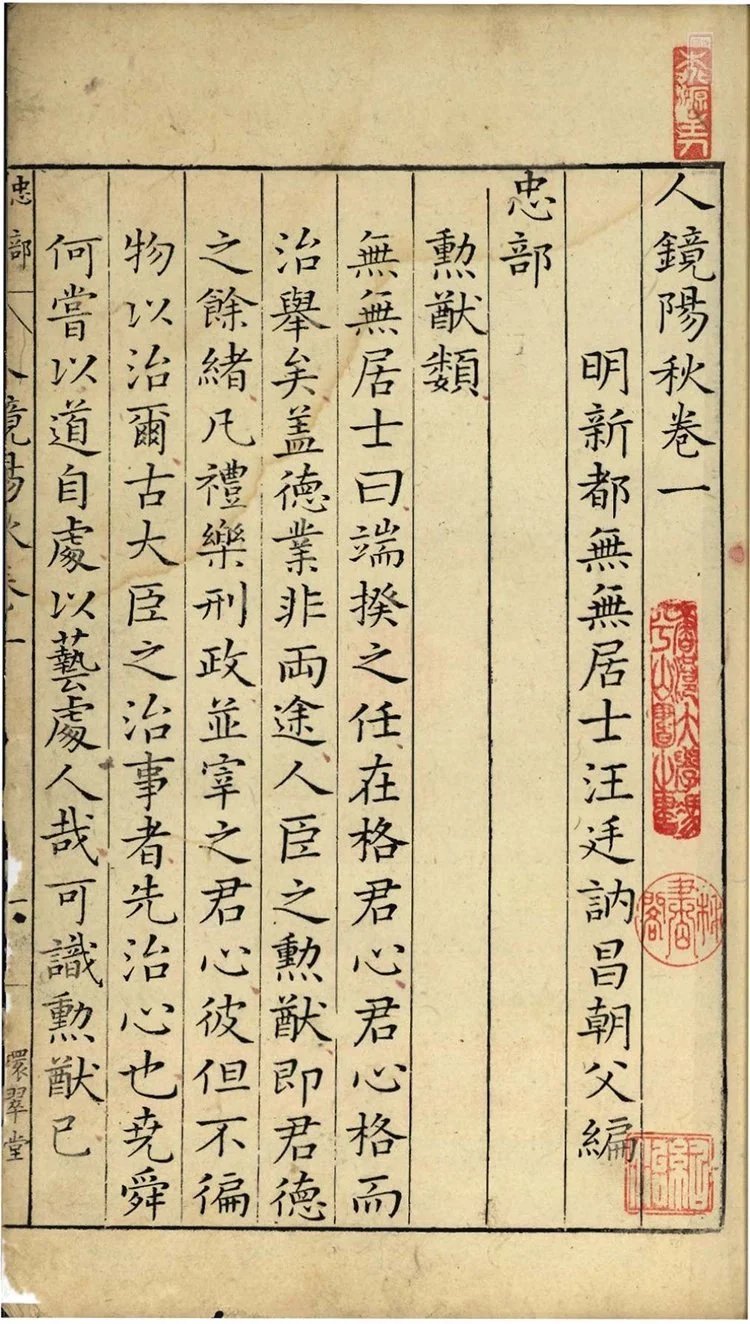 人鏡陽秋卷一
明新都無無居士汪廷訥昌朝父編
忠部
勲猷類
無無居士曰端揆之任在格君心君心格而
治舉矣盖德業非兩途人臣之勲猷即君德
之餘緒凡禮樂刑政並宰之君心彼但不徧
物以治爾古大臣之治事者先治心也堯舜
何嘗以道自處以藝處人哉可識勲猷已
忠部
人鏡陽秋卷一
一
環翠堂